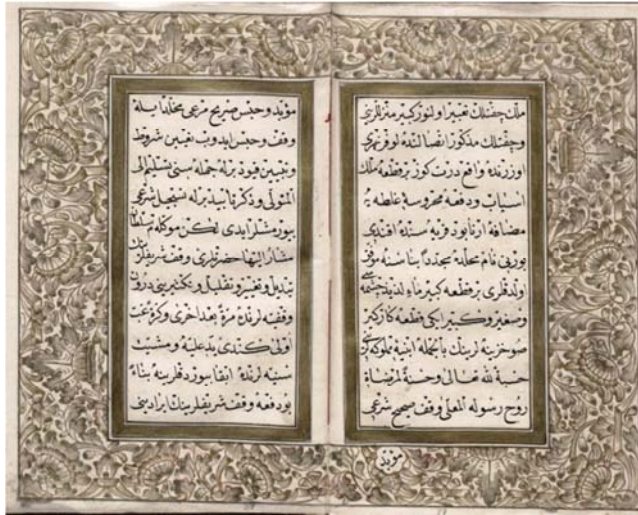 ملك چفتلك تعبير اولنور كبير منزللرى
و چفتلك مذكور اتصالنده لوفر نهرى
اوزرنده واقع درت كوز بر قطعه ملك
اسياب و دفعه محروسه غلطه يه
مضافه ارناود قريه سنده افندى
بورنى نام محلده مجددا بنا سنه موفق
اولدقلرى بر قطعه كبير ماء لذيذ چشمه سى
و صغير و كبير ايكى قطعه كاركير
صو خزينه لرينك بالجمله ابنيه مملوكه لرين
حسبة لله تعالى و حسنة لمرضاة
روح رسوله المعلى وقف صحيح شرعى
مؤبد
مؤبد و حبس صريح مرعى مخلد ايله
وقف و حبس ايدوب تعيين شروط
و تبيين قيود برله جمله سنى تسليم الى
المتولى و ذكر تأبيد برله تسجيل شرعى
بيورمشلر ايدى لكن موكله م سلطان
مشار اليها حضرتلرى وقف شريفلرينك
تبديل و تغيير و تقليل و تكثيرينى درون
وقفيه لرنده مرة بعد اخرى و كرة غب
اولى كندى يد عليه و مشيت
سنيه لرنده ابقا بيوردقلرينه بناء
بو دفعه وقف شريفلرينك ايرادينى